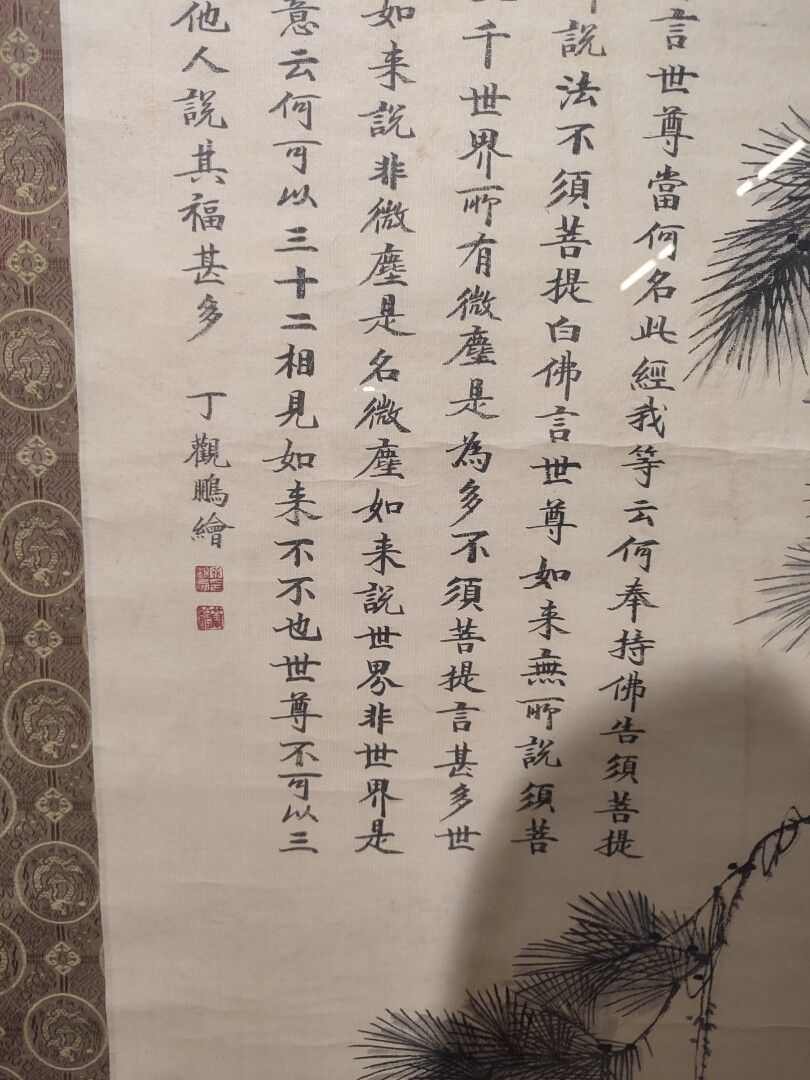 言世尊當何名此經我等云何奉持佛告須菩提
說法不須菩提白佛言世尊如来無所說須菩
千世界所有微塵是為多不須菩提言甚多世
如来說非微塵是名微塵如来說世界非世界是
意云何可以三十二相見如来不不也世尊不可以三
他人說其福甚多 丁觀鵬繪